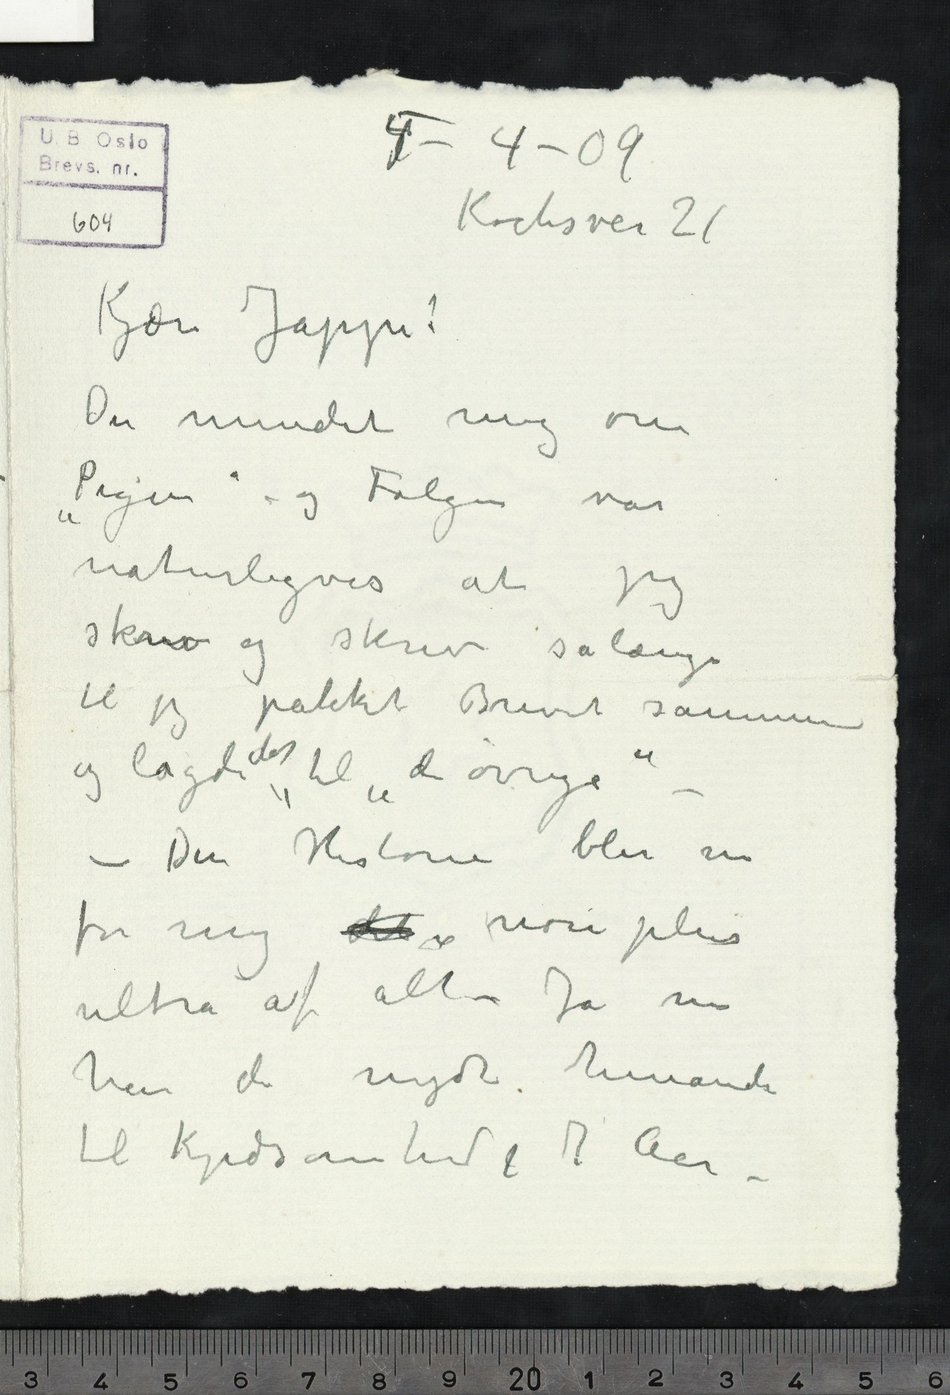 U. B. Oslo
Brevs. nr.
604
4 – 4 – 09
Kochsvei 21
Kjære Jappe!
Du mindet mig om
„Pigen“ – og Følgen var
naturligvis at jeg
skrev og skrev sålænge
til jeg pakket Brevet sammen
og lagde det til „de øvrige“ –
– Den Historie blir nu
for mig non plus
ultra af alt – Ja nu
har de nydt hinanden
til Kjedsomhed i 7 Aar –
3 4 5 6 7 8 9 20 1 2 3 4 5 6